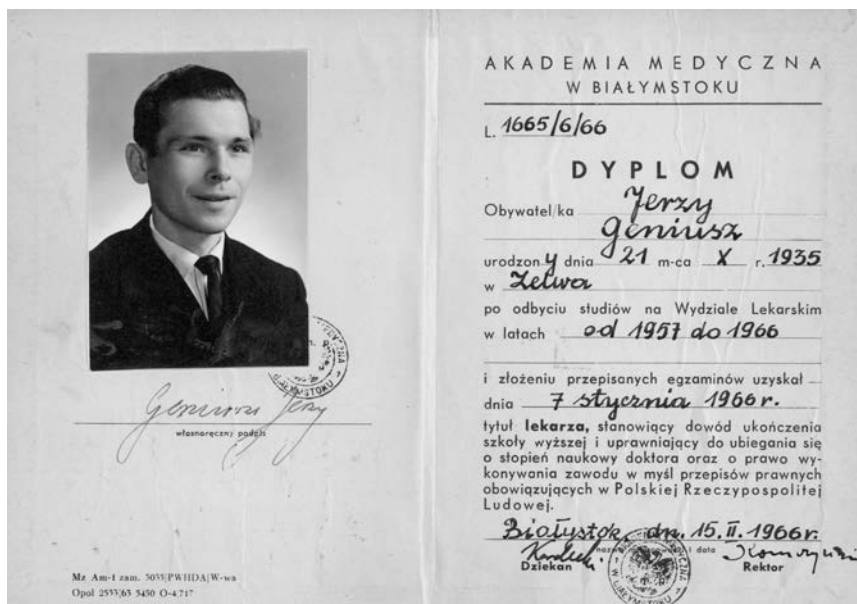 Geniusz Jerzy
własnoręczny podpis
Mz Am-1 zam. 5033|PWHDA|W-wa
Opol 2533|63 5450 O-4|717
AKADEMIA MEDYCZNA
W BIAŁYMSTOKU
L. 1665/6/66
DYPLOM
Obywatel/ka Jerzy
Geniusz
urodzony dnia 21 m-ca X r. 1935
w Zelwa
po odbyciu studiów na Wydziale Lekarskim
w latach od 1957 do 1966
i złożeniu przepisanych egzaminów uzyskał
dnia 7 stycznia 1966 r.
tytuł lekarza, stanowiący dowód ukończenia
szkoły wyższej i uprawniający do ubiegania się
o stopień naukowy doktora oraz o prawo wy-
konywania zawodu w myśl przepisów prawnych
obowiązujących w Polskiej Rzeczypospolitej
Ludowej.
Białystok, dn. 15. II. 1966 r.
i data
Dziekan Rektor
W BIAŁYMSTOKU